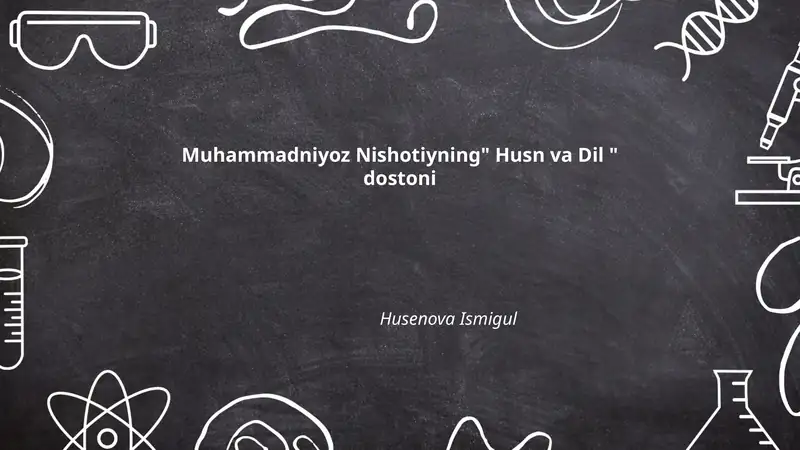 Muhammadniyoz Nishotiyning" Husn va Dil "
dostoni
Husenova Ismigul